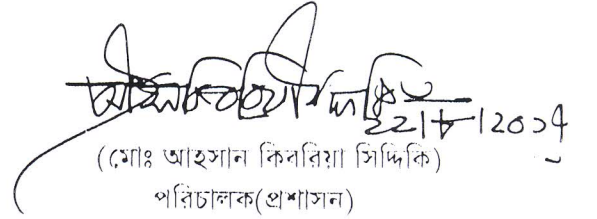 ২২।৮।২০১৭
(মোঃ আহসান কিবরিয়া সিদ্দিকি)
পরিচালক(প্রশাসন)